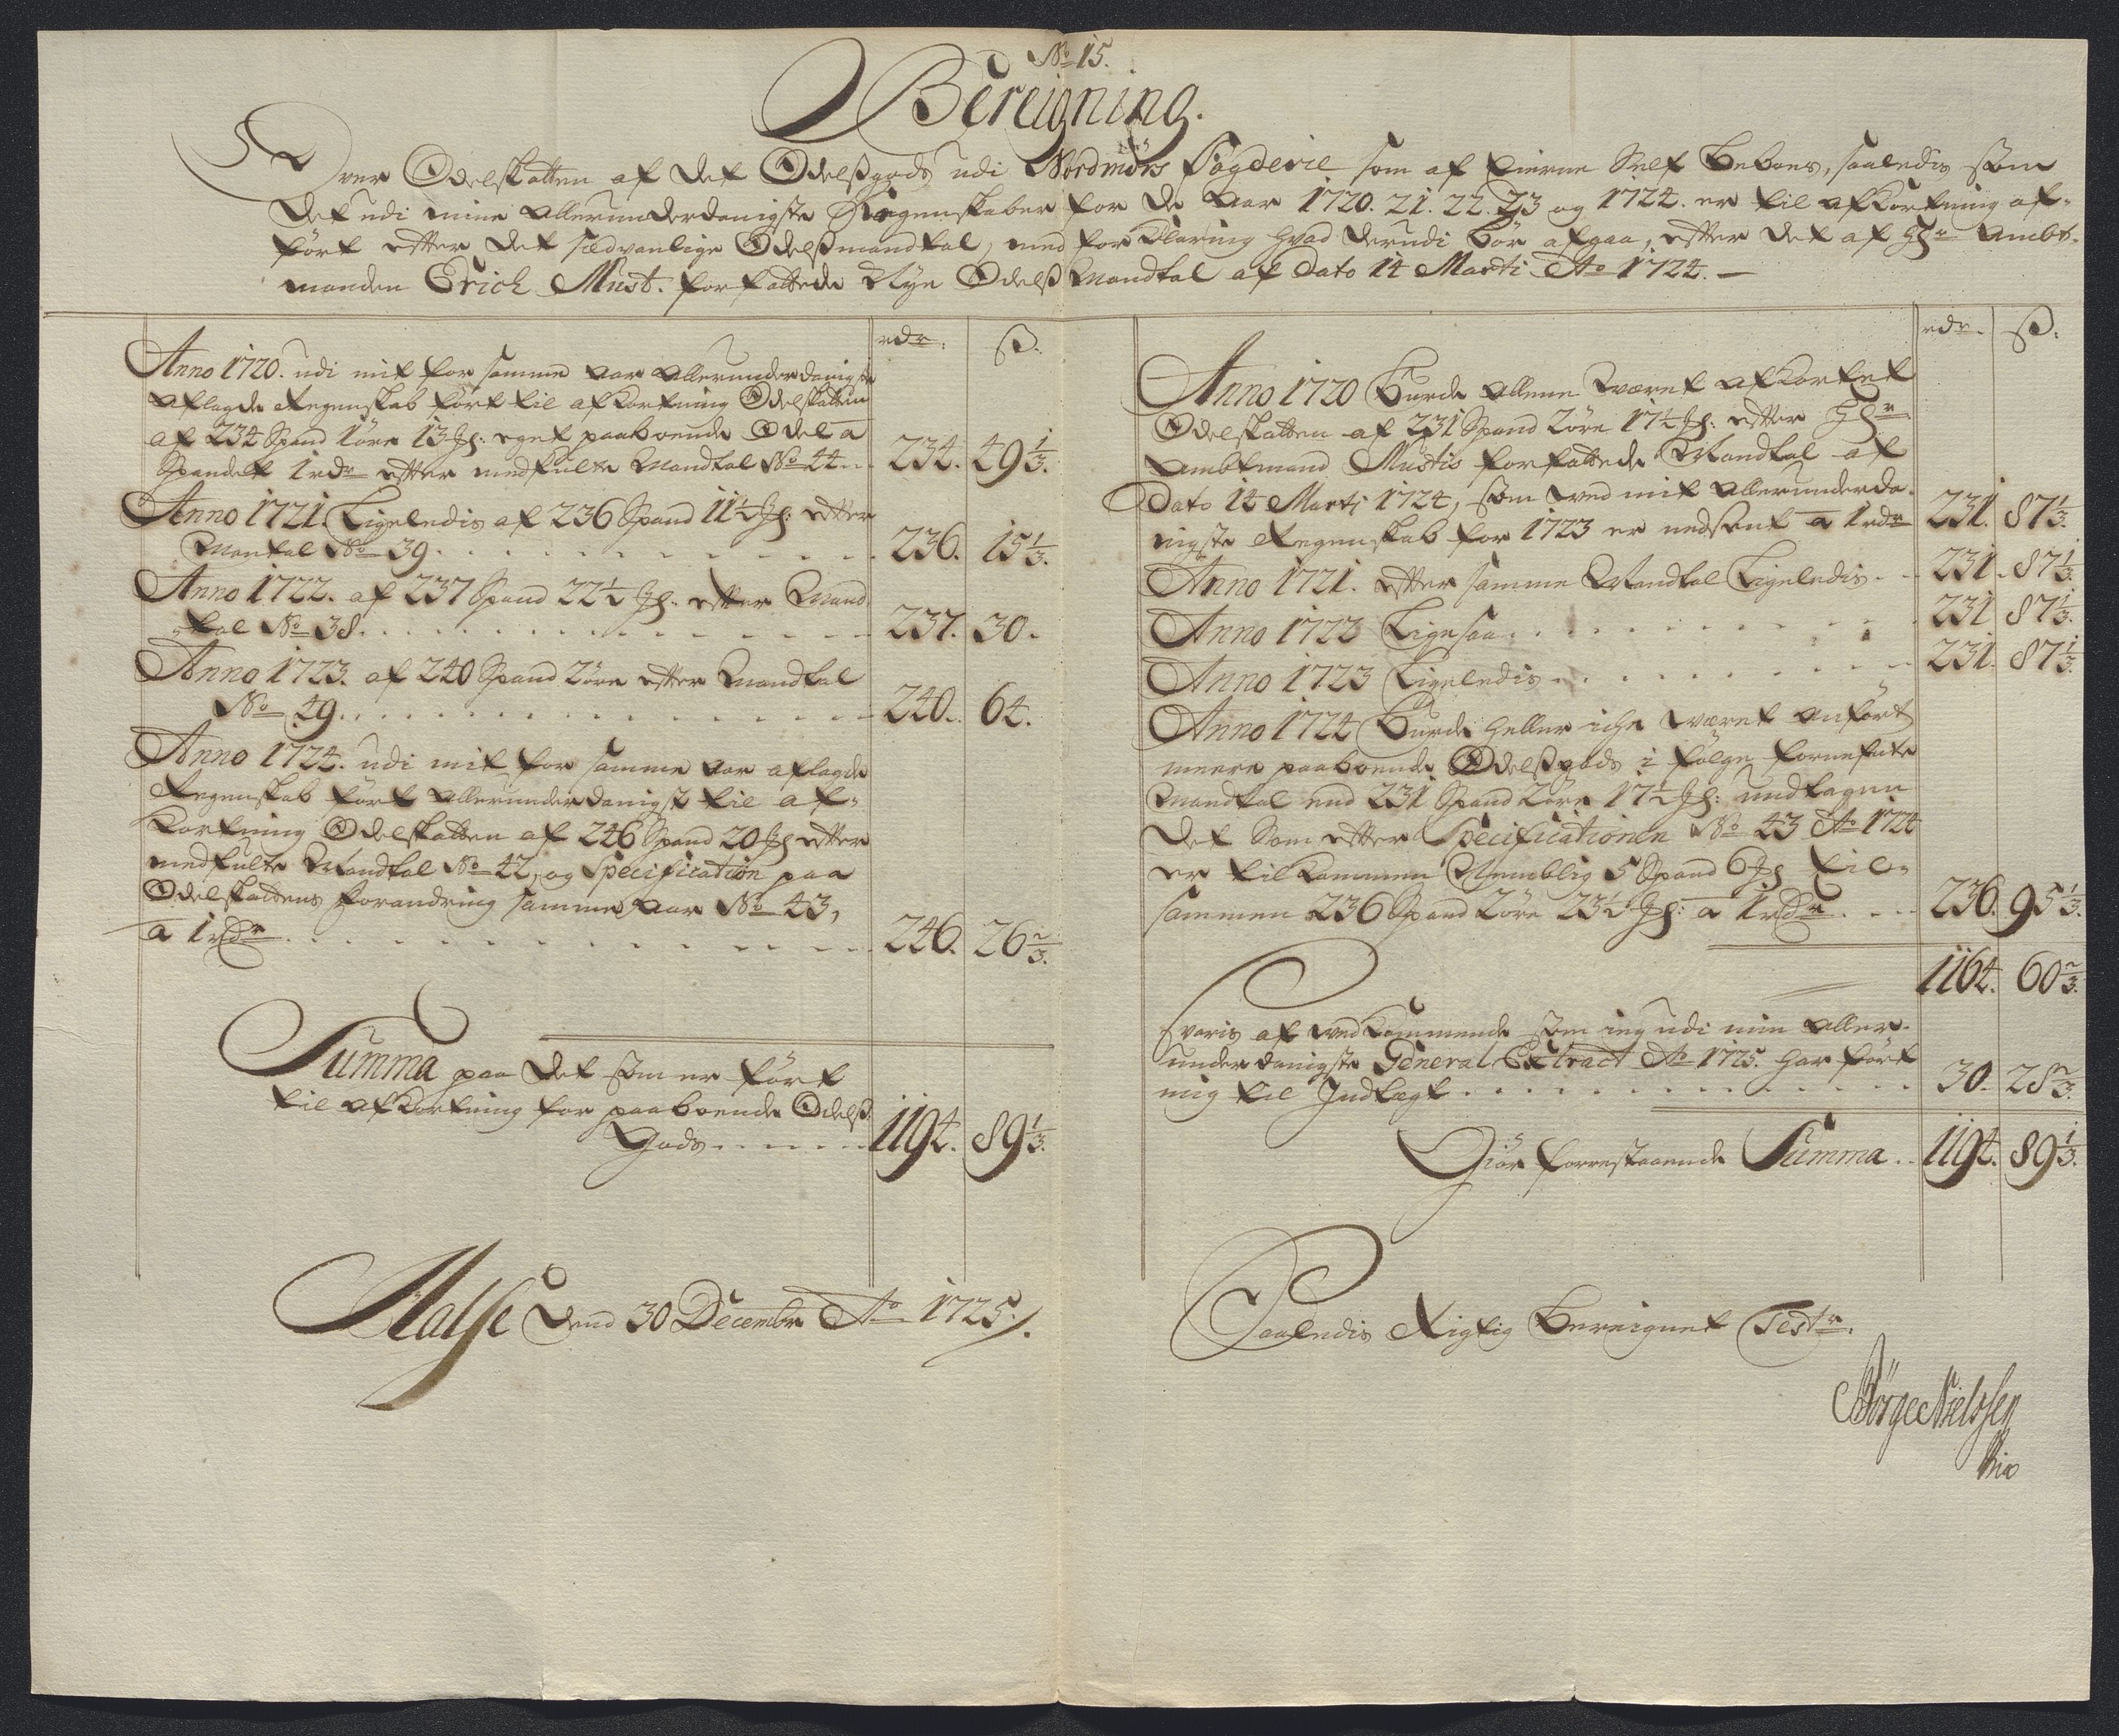 No 15.
Bereigning.
Over Odelskatten af det Odelsgods udi Nordmörs Fogderie som af Eierne Self Beboes, saaledis som
det udi mine allerunderdanigste Regenskaber for de Aar 1720. 21. 22. 23 og 1724. er til afkortning af-
fört efter det sædvanlige Odelsmandtal, med forklaring hvad derudi bör afgaa, efter det af Hr Ambt-
manden Erich Must. forfattede Nye Odels Mandtal af dato 14 Marti Ao 1724. —
rdr. ß.
Anno 1720. udi mit for samme Aar allerunderdanigste
aflagde Regenskab fört til afkortning Odelskatten
af 234 Spand 1öre 13 Js: eget paaboende Odel a
Spandet 1 rdr efter medfulte Mandtal No 44.. 234. 49 1/3.
Anno 1721. Ligeledis af 236 Spand 11½ Js: efter
Mantal No 39. . . . 236. 15 1/3.
Anno 1722. af 237 Spand 22½ Js. efter Mand-
tal No 38. . . . 237. 30.
Anno 1723. af 240 Spand 2öre efter Mandtal
No 49. . . . 240. 64.
Anno 1724. udi mit for samme Aar aflagde
Regenskab fört allerunderdanigst til af-
kortning Odelskatten af 246 Spand 20 Js efter
medfulte Mandtal No 42, og Specification paa
Odelskattens forandring samme Aar No 43,
a 1 rdr. . . . 246. 26 2/3.
Summa paa det som er fört
til afkortning for paaboende Odels
Gods. . . . 1194. 89 1/3.
Halse dend 30 Decembr Ao 1725.
rdr. ß.
Anno 1720 Burde allene været afkortet
Odelskatten af 231 Spand 2öre 17½ Js: efter Hr
Ambtmand Mustis forfattede Mandtal af
Dato 14 Marti 1724, som ved mit allerunderda-
nigste Regenskab for 1723 er nedsent a 1 rdr 231. 87 1/3.
Anno 1721. efter samme Mandtal Ligeledis. . 231. 87 1/3.
Anno 1722 Ligesaa. . . . 231 87 1/3.
Anno 1723 Ligeledis. . . . 231. 87 1/3.
Anno 1724 Burde heller iche været anfört
meere paaboende Odelsgods i fölge fornefnte
Mandtal end 231 Spand 2öre 17½ Js: undtagen
det som efter Specificationen No 43 Ao 1724
er tilkommen Nemblig 5 Spand 6 Js til-
sammen 236 Spand 2öre 23½ Js: a 1 rdr. . . . 236. 95 1/3.
1164. 60 2/3.
Svaris af vedkommende som ieg udi min aller-
underdanigste General Extract Ao 1725. har fört
mig til Indtægt. . . . 30. 28 2/3.
Giör forrestaaende Summa. . 1194. 89 1/3.
Saaledis Rigtig Bereignet Testr.
Börge Nielssen